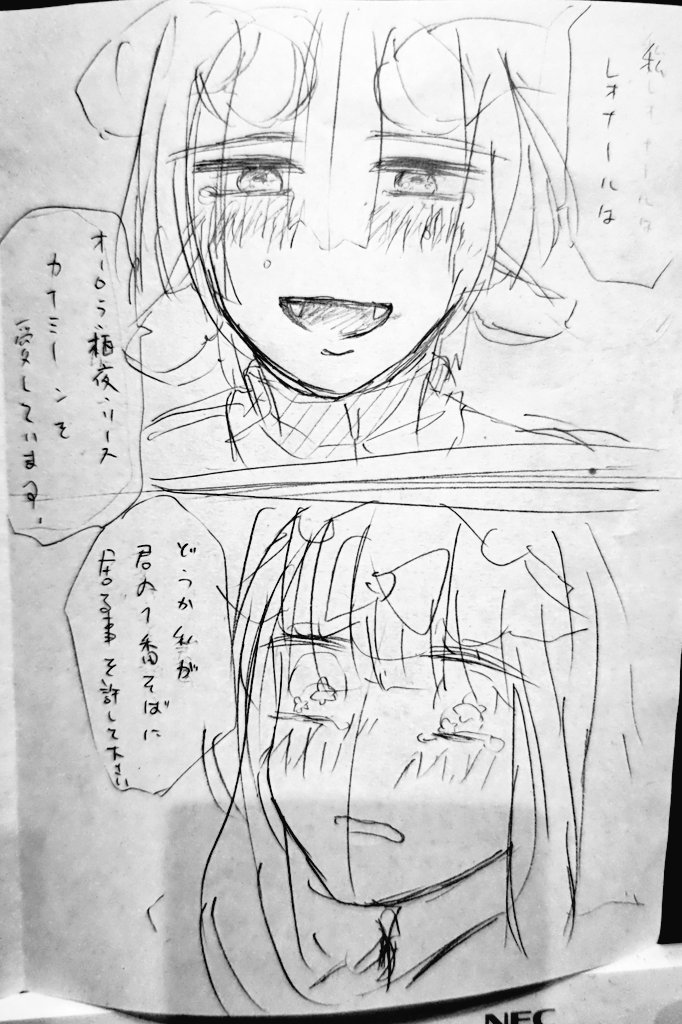 私レオナールは
レオナールは
オーロラ・桜夜・リース
カナミーンを
愛しています。
どうか私が
君の1番そばに
居る事を許して下さい
NEC